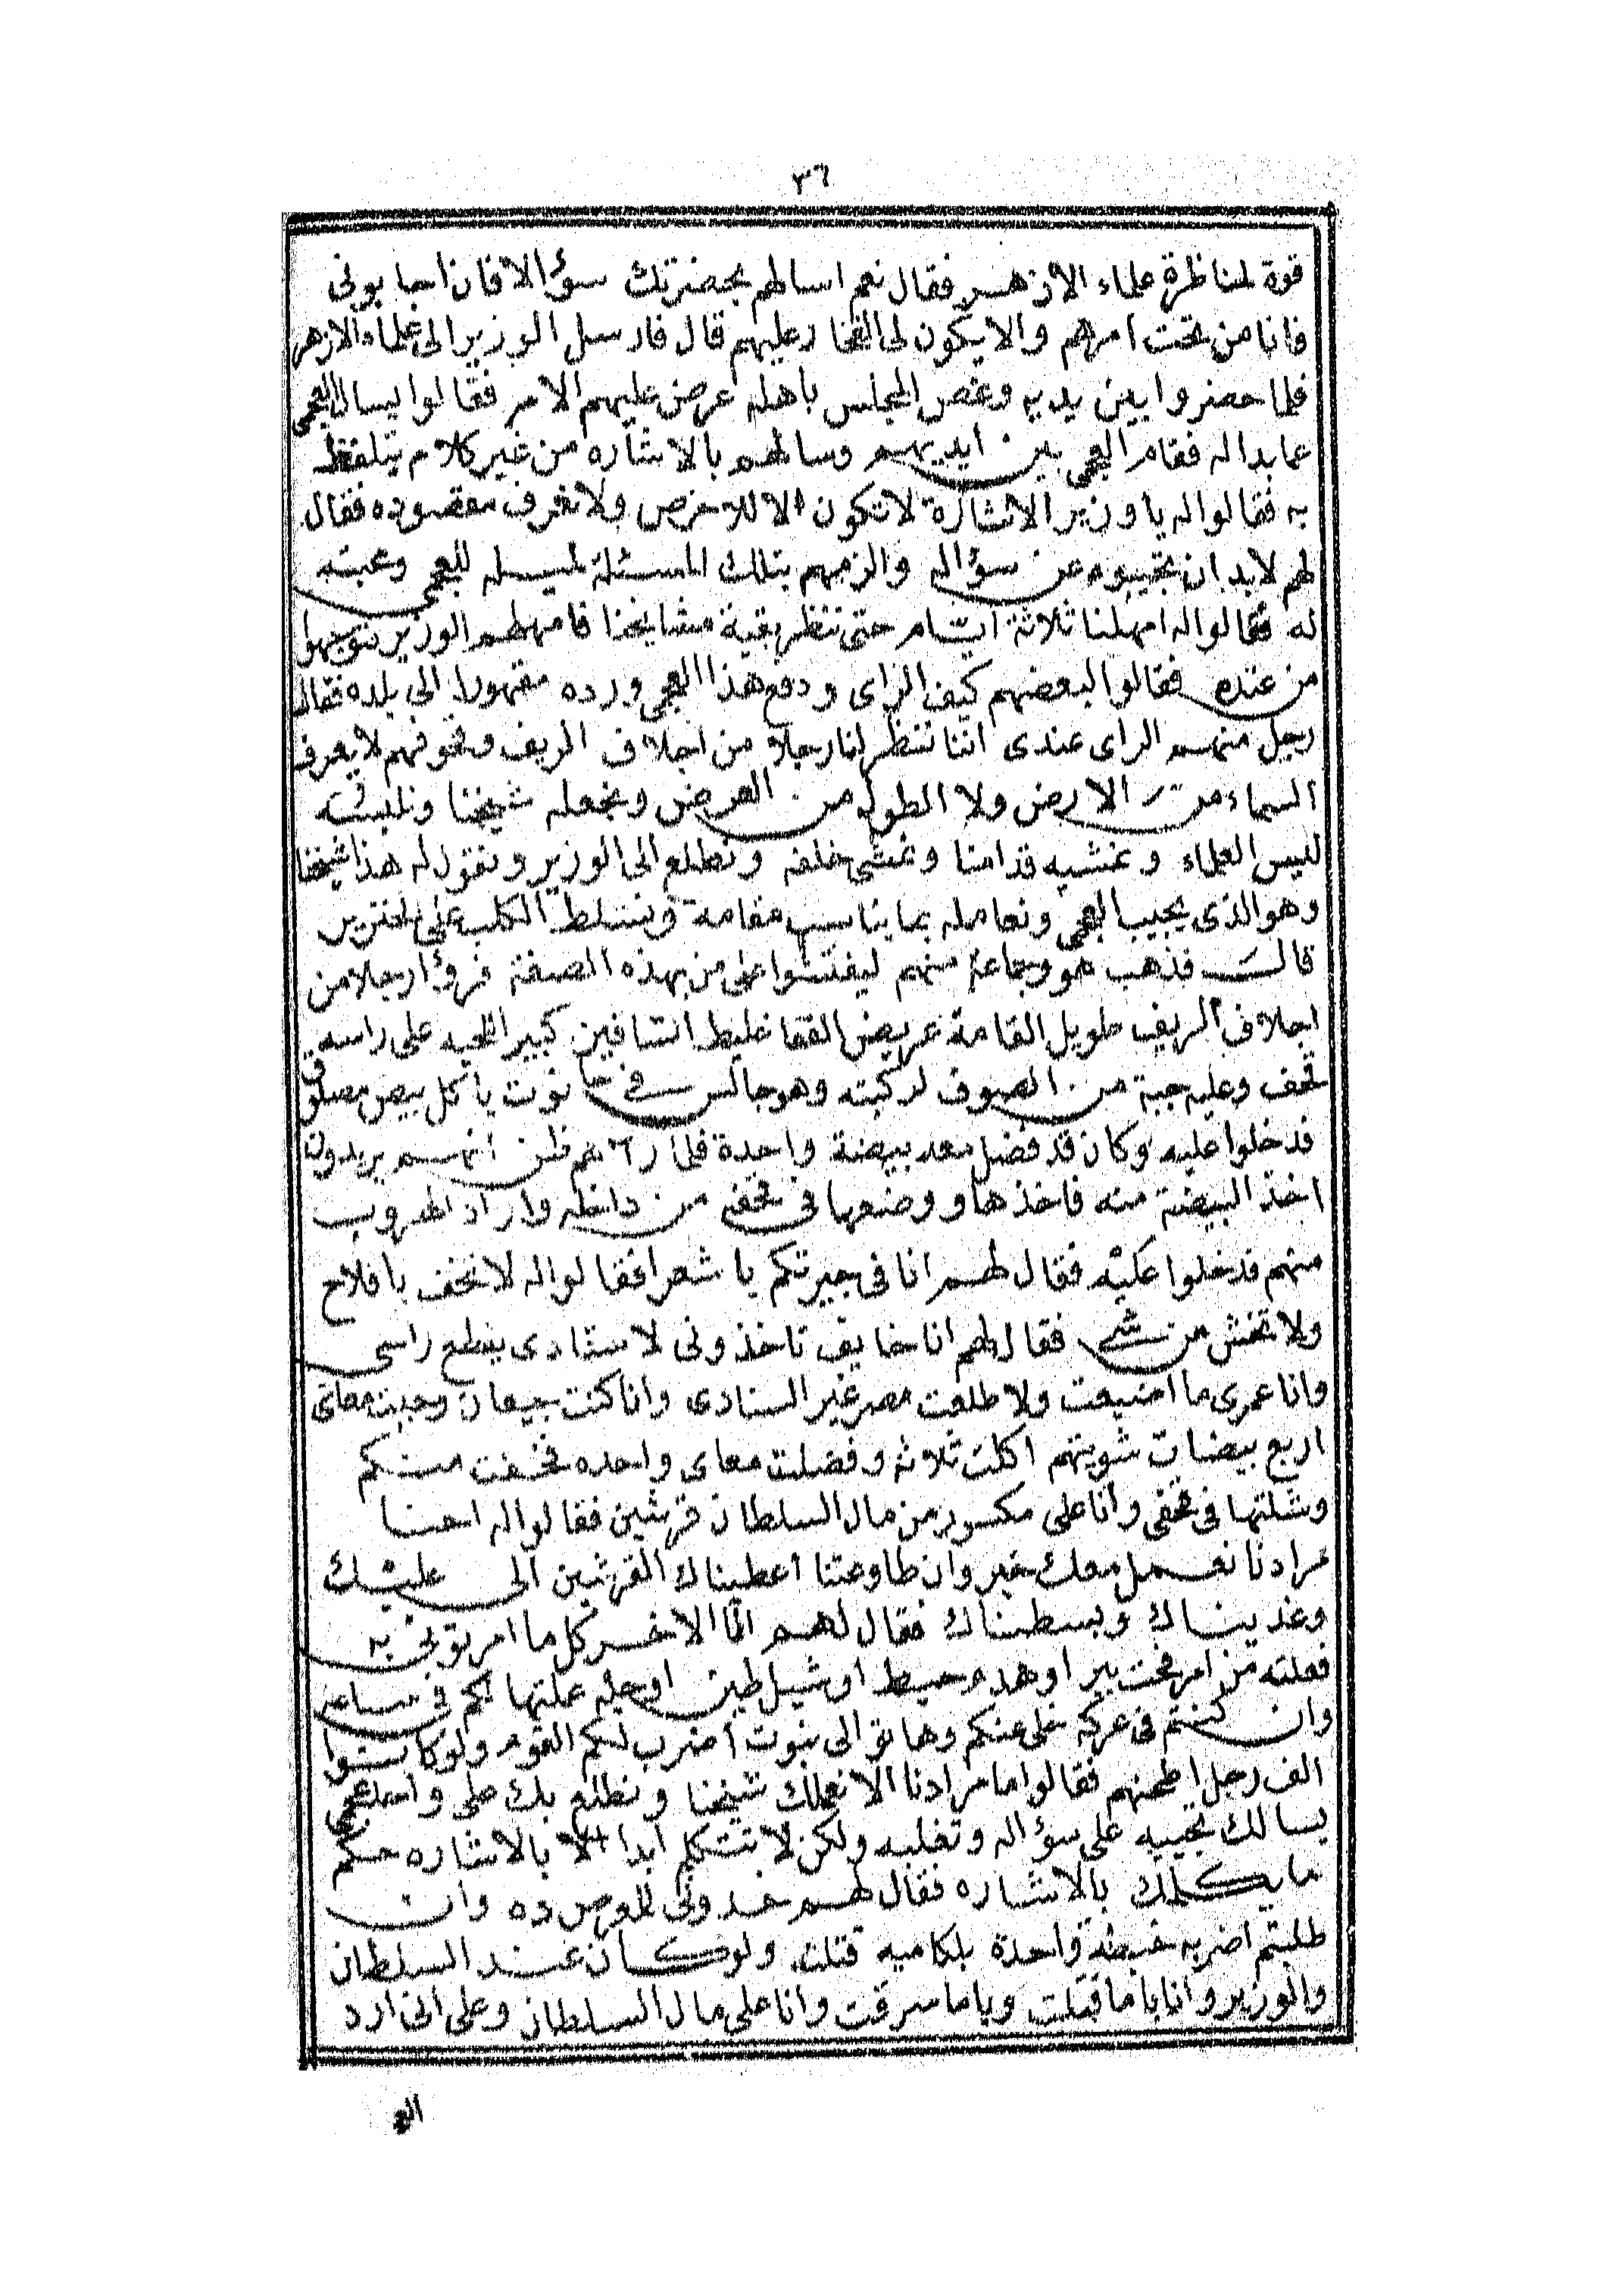 ٣٦
قوة لمناظرة علماء الازهر فقال نعم اسالهم بحضرتك سؤالا فان اجابونى
فانا من تحت امرهم والا يكون لى الفخار عليهم قال فارسل الوزير الى علماء الازهر
فلما حضروا بين يديه وغص المجلس باهله عرض عليهم الامر فقالوا يسال العجمى
عما بداله فقام العجمى بين ايديهم وسالهم بالاشاره من غير كلام يتلفظ
به فقالوا له يا وزير الاشارة لا تكون الا للاخرص ولا نعرف مقصوده فقال
لهم لابد ان تجيبوه عن سؤاله والزمهم بتلك المسئلة لميله للعجمى ومحبته
له فقالوا له امهلنا ثلاثة ايام حتى ننظر بقية مشايخنا فامهلهم الوزير فتوجهوا
من عنده فقالوا لبعضهم كيف الراى ودفع هذا العجمى ورده مقهورا الى بلده فقال
رجل منهم الراى عندى اننا ننظر لنا رجلا من اجلاف الريف وقحوفهم لا يعرف
السماء من الارض ولا الطول من العرض ونجعله شيخنا ونلبسه
لبس العلماء ونمشيه قدامنا ونمشى خلفه ونطلع الى الوزير ونقول له هذا شيخنا
وهو الذى يجيب العجمى ونعامله بما يناسب مقامه ونسلط الكلب على الخنزير
قال فذهب هو وجماعة منهم ليفتشوا على من بهذه الصفة فرؤا رجلا من
اجلاف الريف طويل القامة عريض القفا غليظ الساقين كبير اللحيه على راسه
تحف وعليه جبة من الصوف لركبته وهو جالس فى حانوت ياكل بيض مصلوق
فدخلوا عليه وكان قد فضل معه بيضة واحدة فلما رآهم ظن انهم يريدون
اخذ البيضة منه فاخذها ووضعها فى قحفه من داخله واراد الهروب
منهم فدخلوا عليه فقال لهم انا فى جيرتكم يا شعرا فقالوا له لا تخف يا فلاح
ولا تخش من شى فقال لهم انا خايف تاخذونى لاستادى يقطع راسى
وانا عمرى ما اضيعت ولا طلعت مصر غير السنادى وانا كنت جيعان وجبت معاى
اربع بيضات شويتهم اكلت ثلاثه وفضلت معاى واحده فخفت منكم
وشلتها فى قحفى وانا على مكسور من مال السلطان قرشين فقالوا له احنا
مرادنا نعمل معك خير وان طاوعتنا اعطيناك القرشين الى عليك
وغديناك وبسطناك فقال لهم انا الاخر كل ما امرتونى به
فعلته من امر فحت بير او هدم حيط او شيل طين او جله عملتها لكم فى ساعه
وان كنتم فى عركه على عنكم وهاتو الى نبوت اضرب لكم القوم ولو كانوا
الف رجل اطحنهم فقالوا ما مرادنا الا نعملك شيخنا ونطلع بك على واحد عجمى
يسالك تجيبه على سؤاله وتغلبه ولكن لا تتكلم ابدا الا بالاشاره حكم
ما يكلمك بالاشاره فقال لهم خدونى للوص ده وان
طلبتم اضربه خبطة واحدة بلكاميه قتلته ولو كان عند السلطان
والوزير وانا ياما قتلت وياما سرقت وانا على مال السلطان وعلى انى ارد